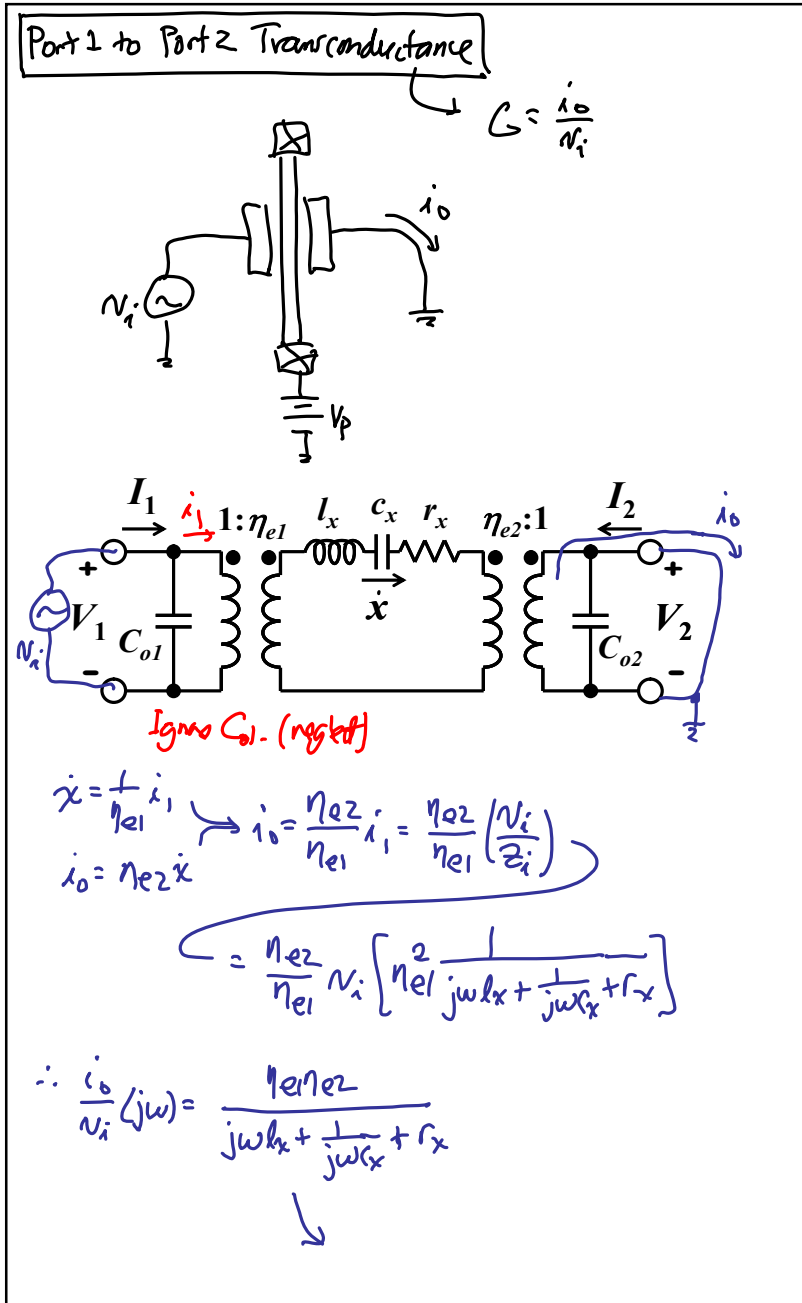 Port 1 to Port 2 Transconductance
G = i₀/vᵢ
i₀
vᵢ
Vₚ
I₁ i₁ 1:ηₑ₁ lₓ cₓ rₓ ηₑ₂:1 I₂ i₀
+ ẋ +
vᵢ V₁ Cₒ₁ Cₒ₂ V₂
- -
Ignore Cₒ₁. (neglect)
ẋ = 1/ηₑ₁ i₁
i₀ = ηₑ₂ẋ
i₀ = ηₑ₂/ηₑ₁ i₁ = ηₑ₂/ηₑ₁ (vᵢ/zᵢ)
= ηₑ₂/ηₑ₁ vᵢ [ηₑ₁² 1/(jωlₓ + 1/(jωcₓ) + rₓ)]
∴ i₀/vᵢ (jω) = ηₑ₁ηₑ₂/(jωlₓ + 1/(jωcₓ) + rₓ)